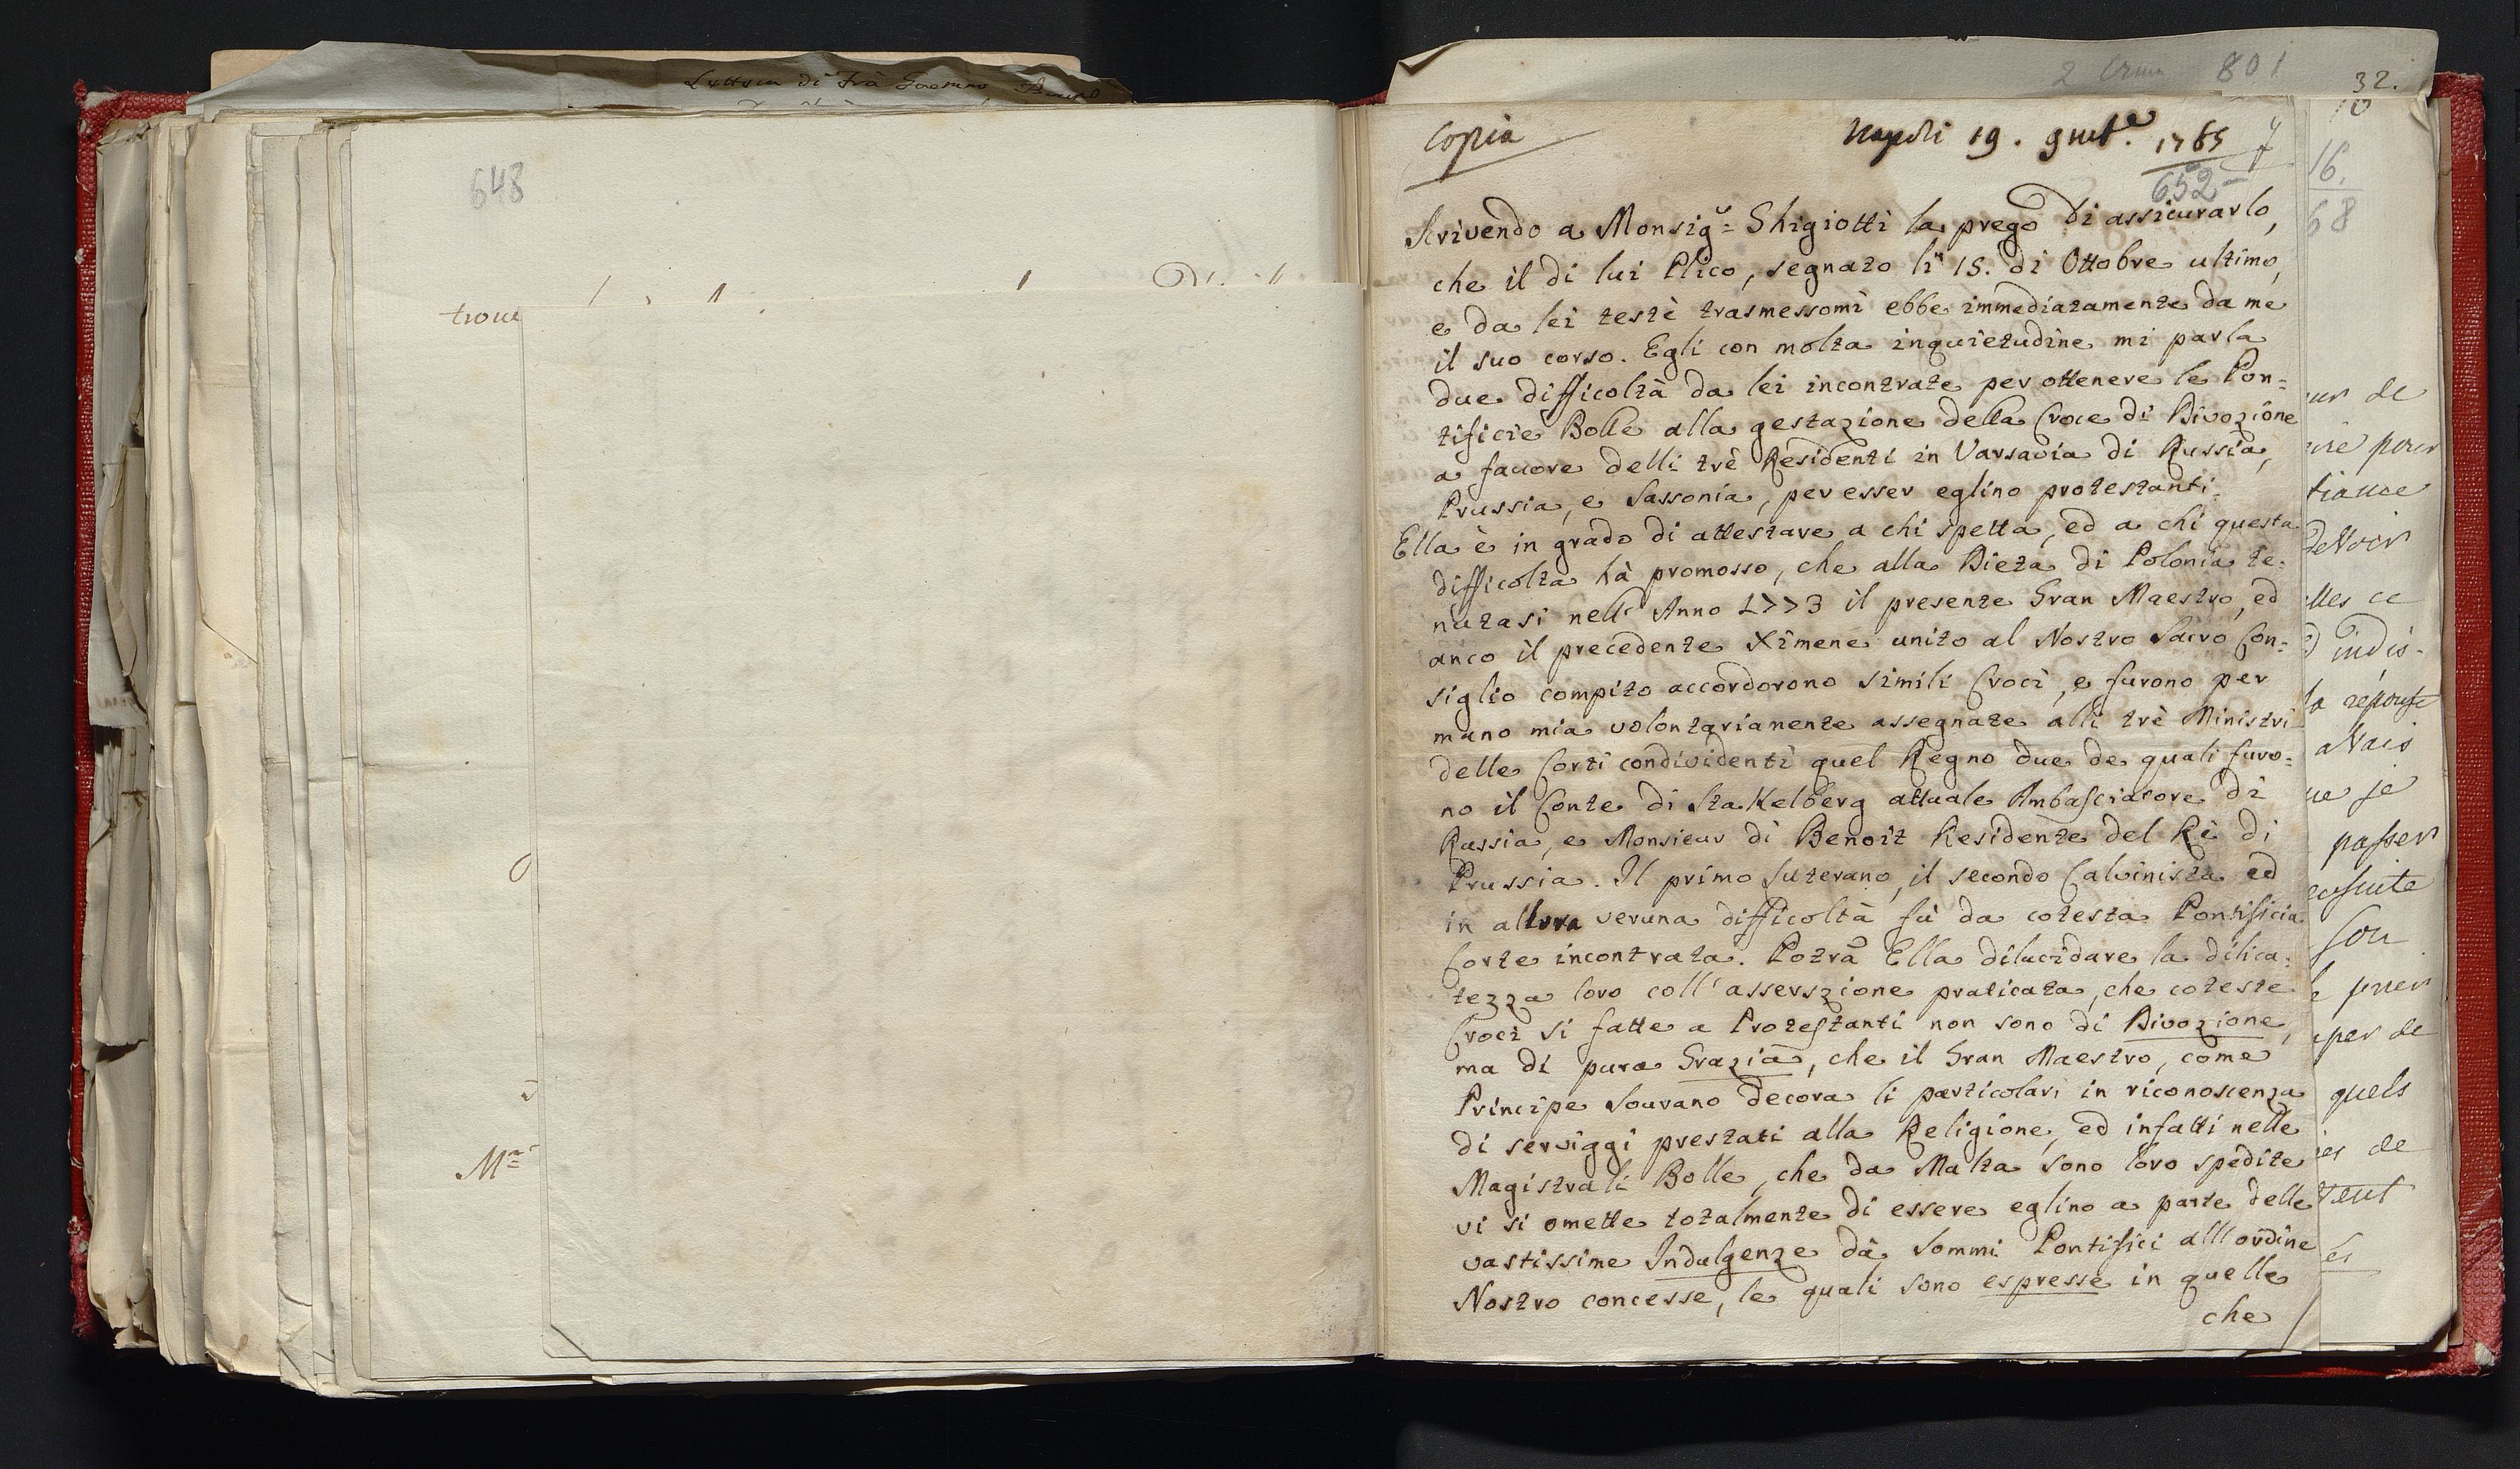 Lettera di frà
648
troue
Mr=
2 801
32.
Copia
Napoli 19. 9mbre. 1785
652
Scrivendo a Monsigr= Ghigiotti la prego di assicurarlo,
che il di lui Plico, segnato li 15. di Ottobre ultimo,
e da lei testè trasmessomi ebbe immediatamente da me
il suo corso. Egli con molta inquietudine mi parla
due difficoltà da lei incontrate per ottenere le Pon=
tificie Bolle alla gestazione della Croce di Divozione
a favore delli trè Residenti in Varsavia di Russia,
Prussia, e Sassonia, per esser eglino protestanti.
Ella è in grado di attestare a chi spetta, ed a chi questa
difficolta hà promosso, che alla Dieta di Polonia te=
nutasi nell' Anno 1773 il presente Gran Maestro, ed
anco il precedente Ximene unito al Nostro Sacro Con=
siglio compito accordorono simili Croci, e furono per
mano mia volontariamente assegnate alli trè Ministri
delle Corti condividenti quel Regno due de quali furo=
no il Conte di Stakelberg attuale Ambasciatore di
Russia, e Monsieur di Benoit Residente del Rè di
Prussia. Il primo Luterano, il secondo Calvinista ed
in allora veruna difficoltà fù da cotesta Pontificia
Corte incontrata. Potrà Ella dilucidare la dilica=
tezza loro coll' asserszione praticata, che coteste
Croci si fatte a Protestanti non sono di Divozione,
ma di pura Grazia, che il Gran Maestro, come
Principe Sourano decora li particolari in riconoscenza
di serviggi prestati alla Religione, ed infatti nelle
Magistrali Bolle, che da Malta sono loro spedite
vi si omette totalmente di essere eglino a parte delle
vastissime Indulgenze dà Sommi Pontifici all'ordine
Nostro concesse, le quali sono espresse in quelle
che
16.
68
ur de
ire pour
tiance
devoir
lles ce
indis-
la réponse
avais
ue je
passer
ensuite
son
per de
quels
es de
vent